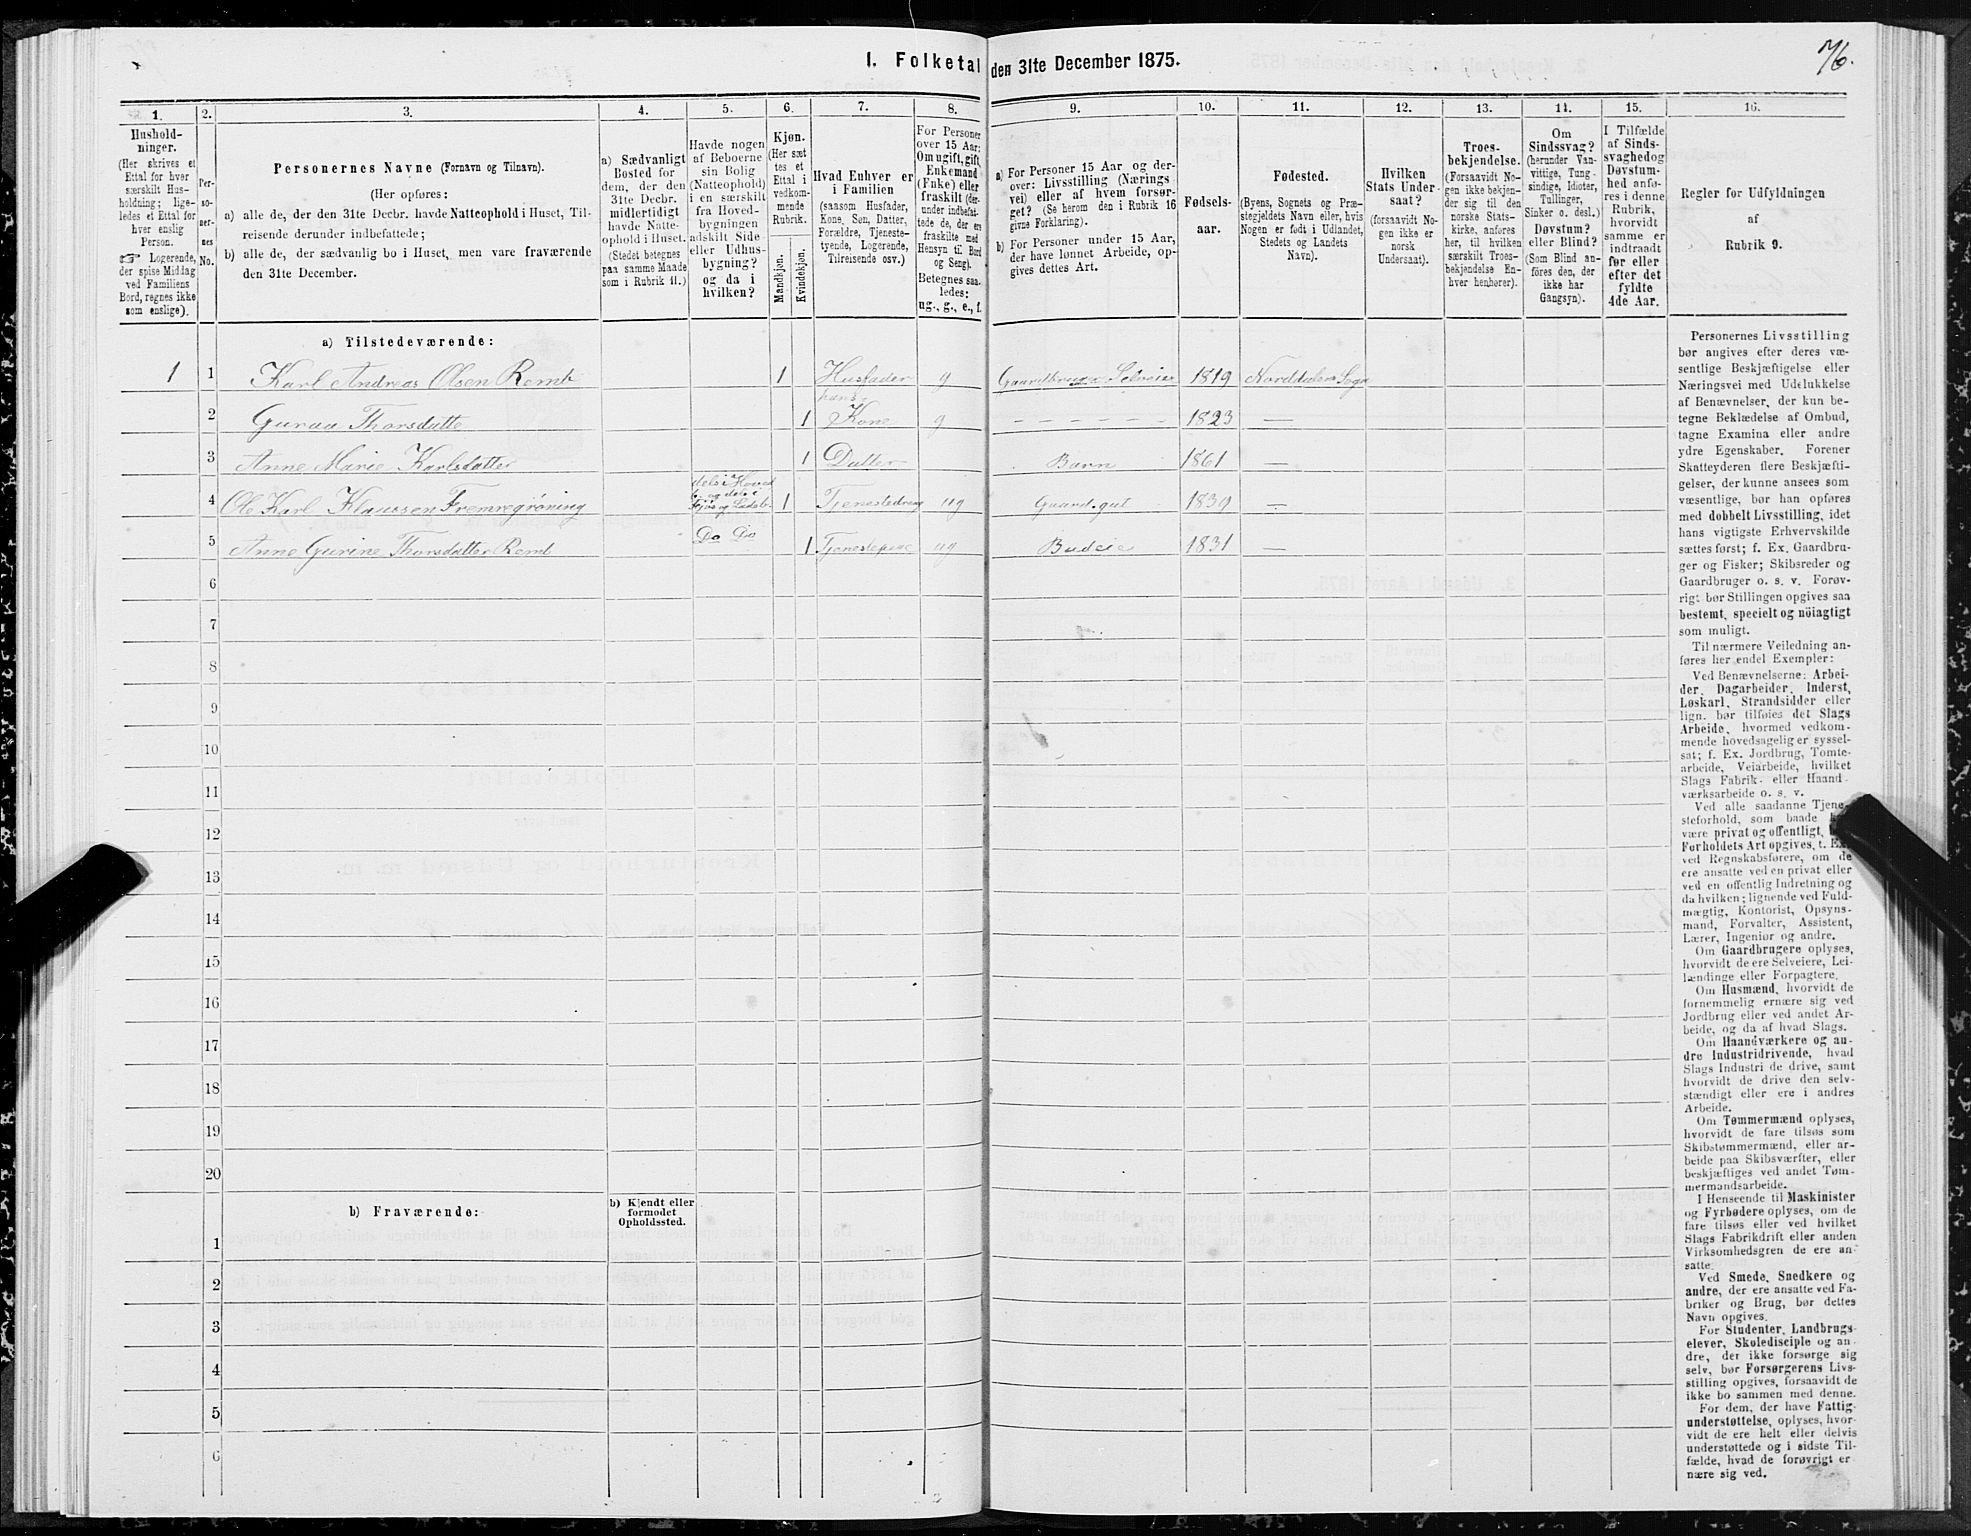 76.
1. Folketal den 31te December 1875.
1. 2. 3. 4. 5. 6. 7. 8. 9. 10. 11. 12. 13. 14. 15. 16.
Hushold-
ninger.
(Her skrives et
Ettal for hver
særskilt Hus-
holdning; lige-
ledes et Ettal for
hver enslig
Person.
☞ Logerende,
der spise Middag
ved Familiens
Bord, regnes ikke
som enslige).
Per-
so-
ner-
nes
No.
Personernes Navne (Fornavn og Tilnavn).
(Her opføres:
a) alle de, der den 31te Decbr. havde Natteophold i Huset, Til-
reisende derunder indbefattede;
b) alle de, der sædvanlig bo i Huset, men vare fraværende
den 31te December.
a) Sædvanligt
Bosted for
dem, der den
31te Decbr.
midlertidigt
havde Natte-
ophold i Huset.
(Stedet betegnes
paa samme Maade
som i Rubrik 11.)
Havde nogen
af Beboerne
sin Bolig
(Natteophold)
i en særskilt
fra Hoved-
bygningen
adskilt Side-
eller Udhus-
bygning?
og da i
hvilken?
Kjøn.
(Her sæt
tes et
Ettal i
vedkom-
mende
Rubrik.
Mandkjøn.
Kvindekjøn.
Hvad Enhver er
i Familien
(saasom Husfader,
Kone, Søn, Datter,
Forældre, Tjeneste-
tyende, Logerende,
Tilreisende osv.)
For Personer
over 15 Aar:
Om ugift, gift,
Enkemand
(Enke) eller
fraskilt (der-
under indbefat-
tede de, der ere
fraskilte med
Hensyn til Bord
og Seng).
Betegnes saa-
ledes:
ug., g., e., f.
a) For Personer 15 Aar og der-
over: Livsstilling (Nærings
vei) eller af hvem forsør-
get? (Se herom den i Rubrik 16
givne Forklaring).
b) For Personer under 15 Aar,
der have lønnet Arbeide, op-
gives dettes Art.
Fødsels-
aar.
Fødested.
(Byens, Sognets og Præ-
stegjeldets Navn eller, hvis
Nogen er født i Udlandet,
Stedets og Landets
Navn).
Hvilken
Stats Under-
saat?
(forsaavidt No-
gen ikke er
norsk
Undersaat).
Troes-
bekjendelse.
(Forsaavidt No-
gen ikke bekjen-
der sig til den
norske Stats-
kirke, anføres
her, til hvilken
særskilt Troes-
bekjendelse En-
hver henhører).
Om
Sindssvag?
(herunder Van-
vittige, Tung-
sindige, Idioter,
Tullinger,
Sinker o. desl.)
Døvstum?
eller Blind?
(Som Blind an-
føres den, der
ikke har
Gangsyn).
I Tilfælde
af Sinds-
svaghed og
Døvstum-
hed anfø-
res i denne
Rubrik,
hvorvidt
samme er
indtraadt
før eller
efter det
fyldte
4de Aar.
Regler for Udfyldningen
af
Rubrik 9.
a) Tilstedeværende:
1 1 Karl Andreas Olsen Remb 1 Husfader g Gaardbruger Selveier 1819 Norddalens Sogn
2 Gurau Thorsdatte 1 hans Kone g - - - - - - 1823 —
3 Anne Marie Karlsdatter 1 Datter Barn 1861 —
4 Ole Karl Klaussen Fremregrøning dels i Hoved b. og dels i Fjøs og Ladeb. 1 Tjenestedreng ug Gaardsgut 1839 —
5 Anne Gurine Thorsdatter Remb Do Do 1 Tjenestepige ug Budeie 1831 —
6
7
8
9
10
11
12
13
14
15
16
17
18
19
20
b) Fraværende:
b) Kjendt eller
formodet
Opholdssted.
1
2
3
4
5
6
Personernes Livsstilling
bør angives efter deres væ-
sentlige Beskjæftigelse eller
Næringsvei med Udelukkelse
af Benævnelser, der kun be-
tegne Beklædelse af Ombud,
tagne Examina eller andre
ydre Egenskaber. Forener
Skatteyderen flere Beskjæfti-
gelser, der kunne ansees som
væsentlige, bør han opføres
med dobbelt Livsstilling, idet
hans vigtigste Erhvervskilde
sættes først; f. Ex. Gaardbru-
ger og Fisker; Skibsreder og
Gaardbruger o. s. v. Forøv-
rigt bør Stillingen opgives saa
bestemt, specielt og nöiagtigt
som muligt.
Til nærmere Veiledning an-
føres her endel Exempler:
Ved Benævnelserne: Arbei-
der, Dagarbeider, Inderst,
Løskarl, Strandsidder eller
lign. bør tilføies det Slags
Arbeide, hvormed vedkom-
mende hovedsagelig er syssel-
sat; f. Ex. Jordbrug, Tomte-
arbeide, Veiarbeide, hvilket
Slags Fabrik- eller Haand-
værksarbeide o. s. v.
Ved alle saadanne Tjene-
steforhold, som baade
være privat og offentligt,
Forholdets Art opgives, t. Ex.
ved Regnskabsførere, om de
ere ansatte ved en privat eller
ved en offentlig Indretning og
da hvilken; lignende ved Fuld-
mægtig, Kontorist, Opsyns-
mand, Forvalter, Assistent,
Lærer, Ingeniør og andre.
Om Gaardbrugere oplyses,
hvorvidt de ere Selveiere, Lei-
lændinge eller Forpagtere.
Om Husmænd, hvorvidt de
fornemmelig ernære sig ved
Jordbrug eller ved andet Ar-
beide, og da af hvad Slags.
Om Haandværkere og an-
dre Industridrivende, hvad
Slags Industri de drive, samt
hvorvidt de drive den selv-
stændigt eller ere i andres
Arbeide.
Om Tømmermænd oplyses,
hvorvidt de fare tilsøs som
Skibstømmermænd, eller ar-
beide paa Skibsværfter, eller
beskjæftiges ved andet Tøm-
mermandsarbeide.
I Henseende til Maskinister
og Fyrbødere oplyses, om de
fare tilsøs eller ved hvilket
Slags Fabrikdrift eller anden
Virksomhedsgren de ere an-
satte.
Ved Smede, Snedkere og
andre, der ere ansatte ved Fa-
briker og Brug, bør dettes
Navn opgives.
For Studenter, Landbrugs-
elever, Skoledisciple og an-
dre, der ikke forsørge sig
selv, bør Forsørgerens Livs-
stilling opgives, forsaavidt de
ikke bo sammen med denne.
For dem, der have Fattig-
understøttelse, oplyses, hvor-
vidt de ere helt eller delvis
understøttede og i sidste Til-
fælde, hvad de forøvrigt er-
nære sig ved.